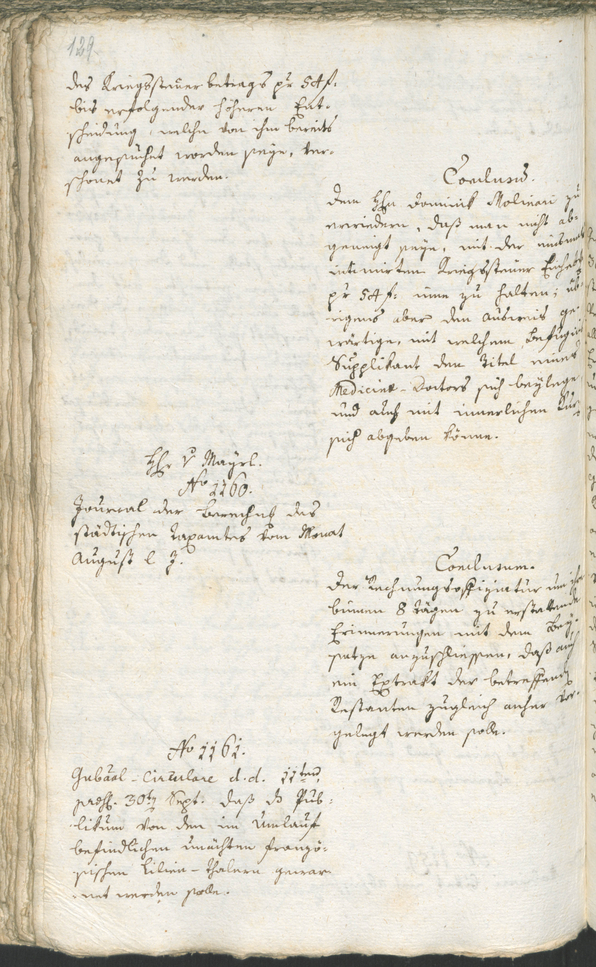 129.
des Kriegssteuerbetrags pr 54 f.
bis erfolgender höheren Ent-
scheidung, welche von ihm bereits
angesuchet worden seye, ver-
schonet zu werden.
Conclusum.
Dem Hrn Dominick Molinari zu
erwiedern, daß man nicht ab-
geneigt seye, mit der
intimirten Kriegssteuer
pr 54 f: inne zu halten; üb-
rigens aber den Ausweis ge-
wärtige, mit welchem Befugniß
Supplikant den Titel eines
Medicinæ-Doctors sich beylege
und auch mit innerlichen Kur
sich abgeben könne.
Hr v Mayrl.
No 1160.
Journal der Berechnß des
städtischen Taxamtes vom Monat
August l. J.
Conclusum.
Der Rechnungsoffiziatur um ihre
binnen 8 Tägen zu erstattende
Erinnerungen mit dem Bey-
satze anzuschliessen, daß auch
ein Extrakt der betreffend
Restanten zugleich anher vor-
gelegt werden solle.
No 1161.
Gubäal-Circulare d. d. 11ten,
præs. 30ten Sept. daß das Pub-
likum von den im Umlauf
befindlichen unächten franzö-
sischen Lilien-Thalern gewar-
net werden solle.